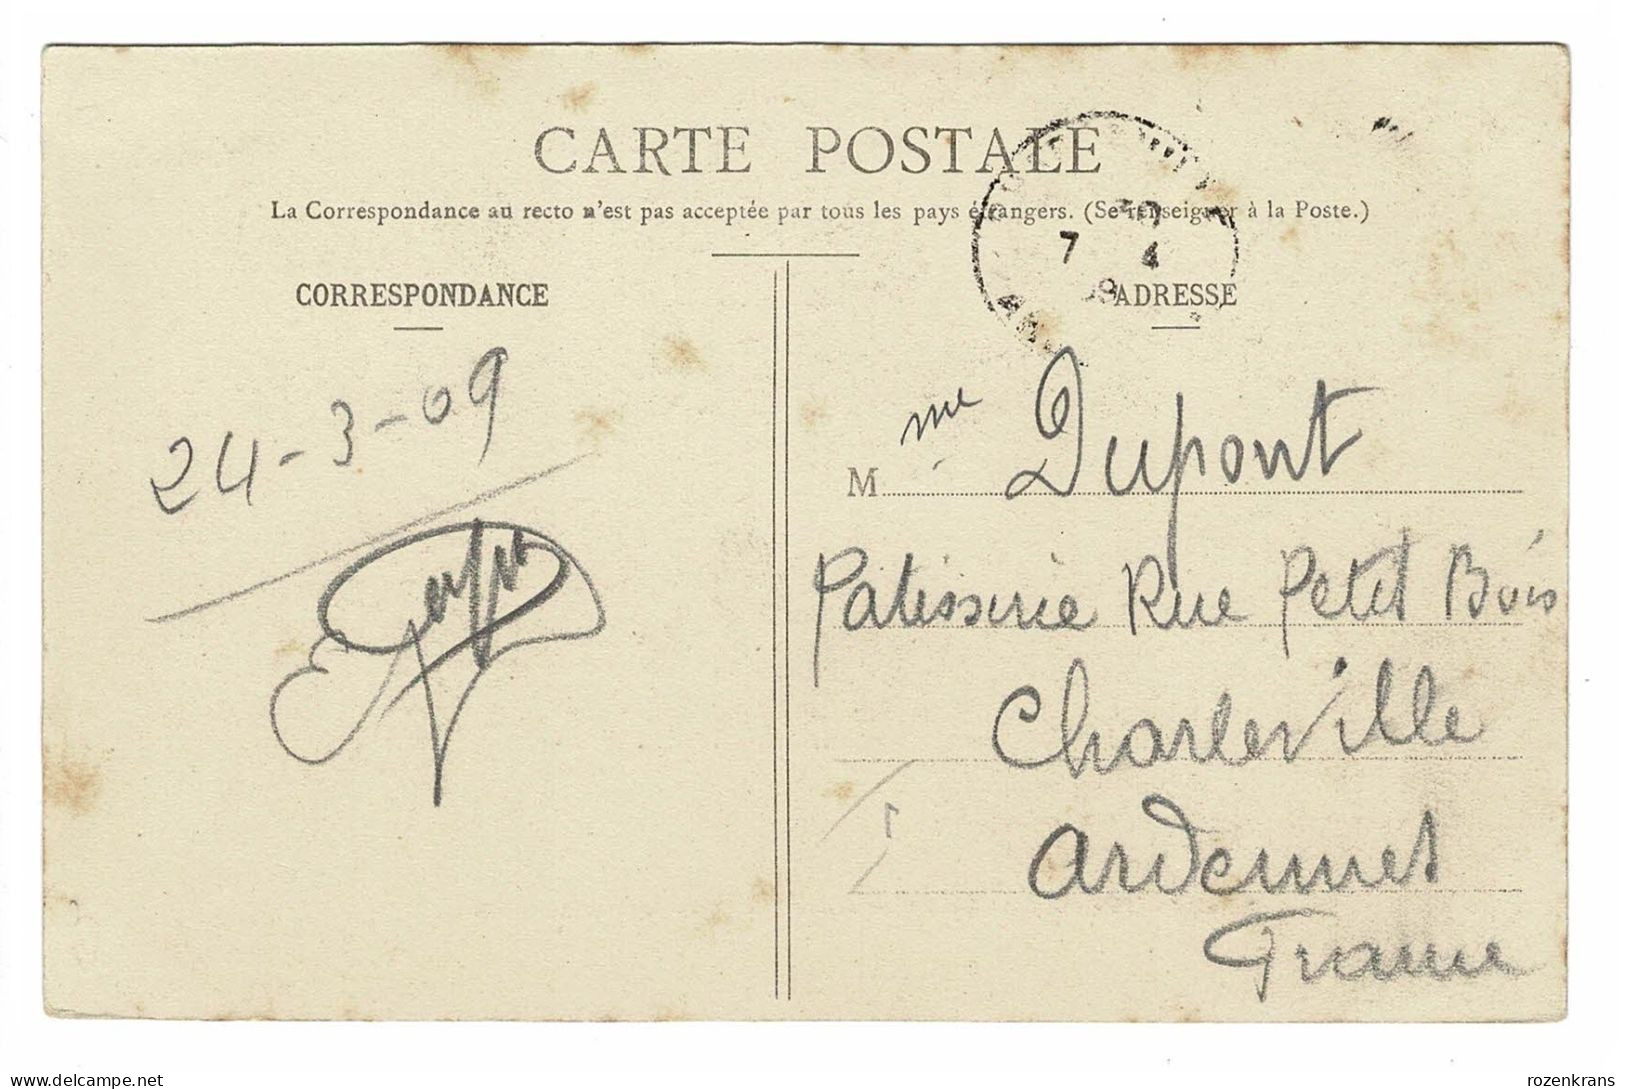 CARTE POSTALE
La Correspondance au recto n'est pas acceptée par tous les pays étrangers. (Se renseigner à la Poste.)
CORRESPONDANCE
ADRESSE
7 4
24-3-09
M me Dupont
Patisserie Rue Petit Bois
Charleville
Ardennes
France
delcampe.net
rozenkrans